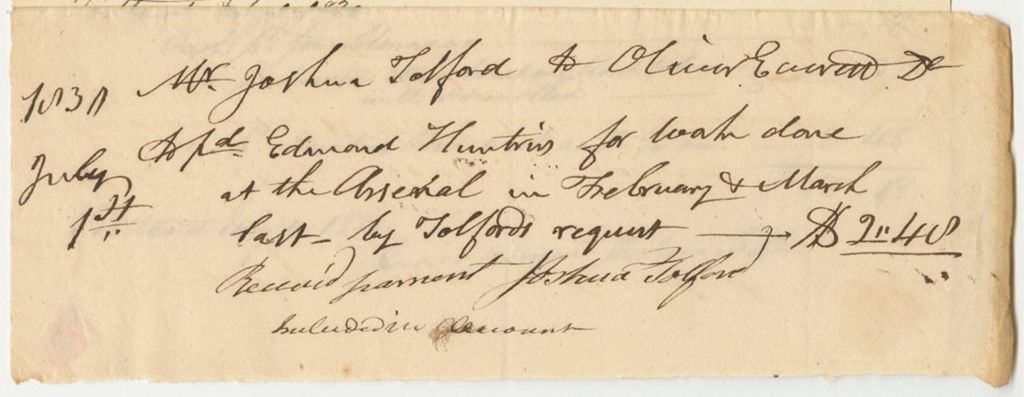 1831 Mr. Joshua Tolford to Oliver Everett Dr
July 1st To pd. Edmond Huntris for work done
at the Arsenal in February & March
last - by Tolfords request — $ 2"48
Received payment Joshua Tolford
Included in account